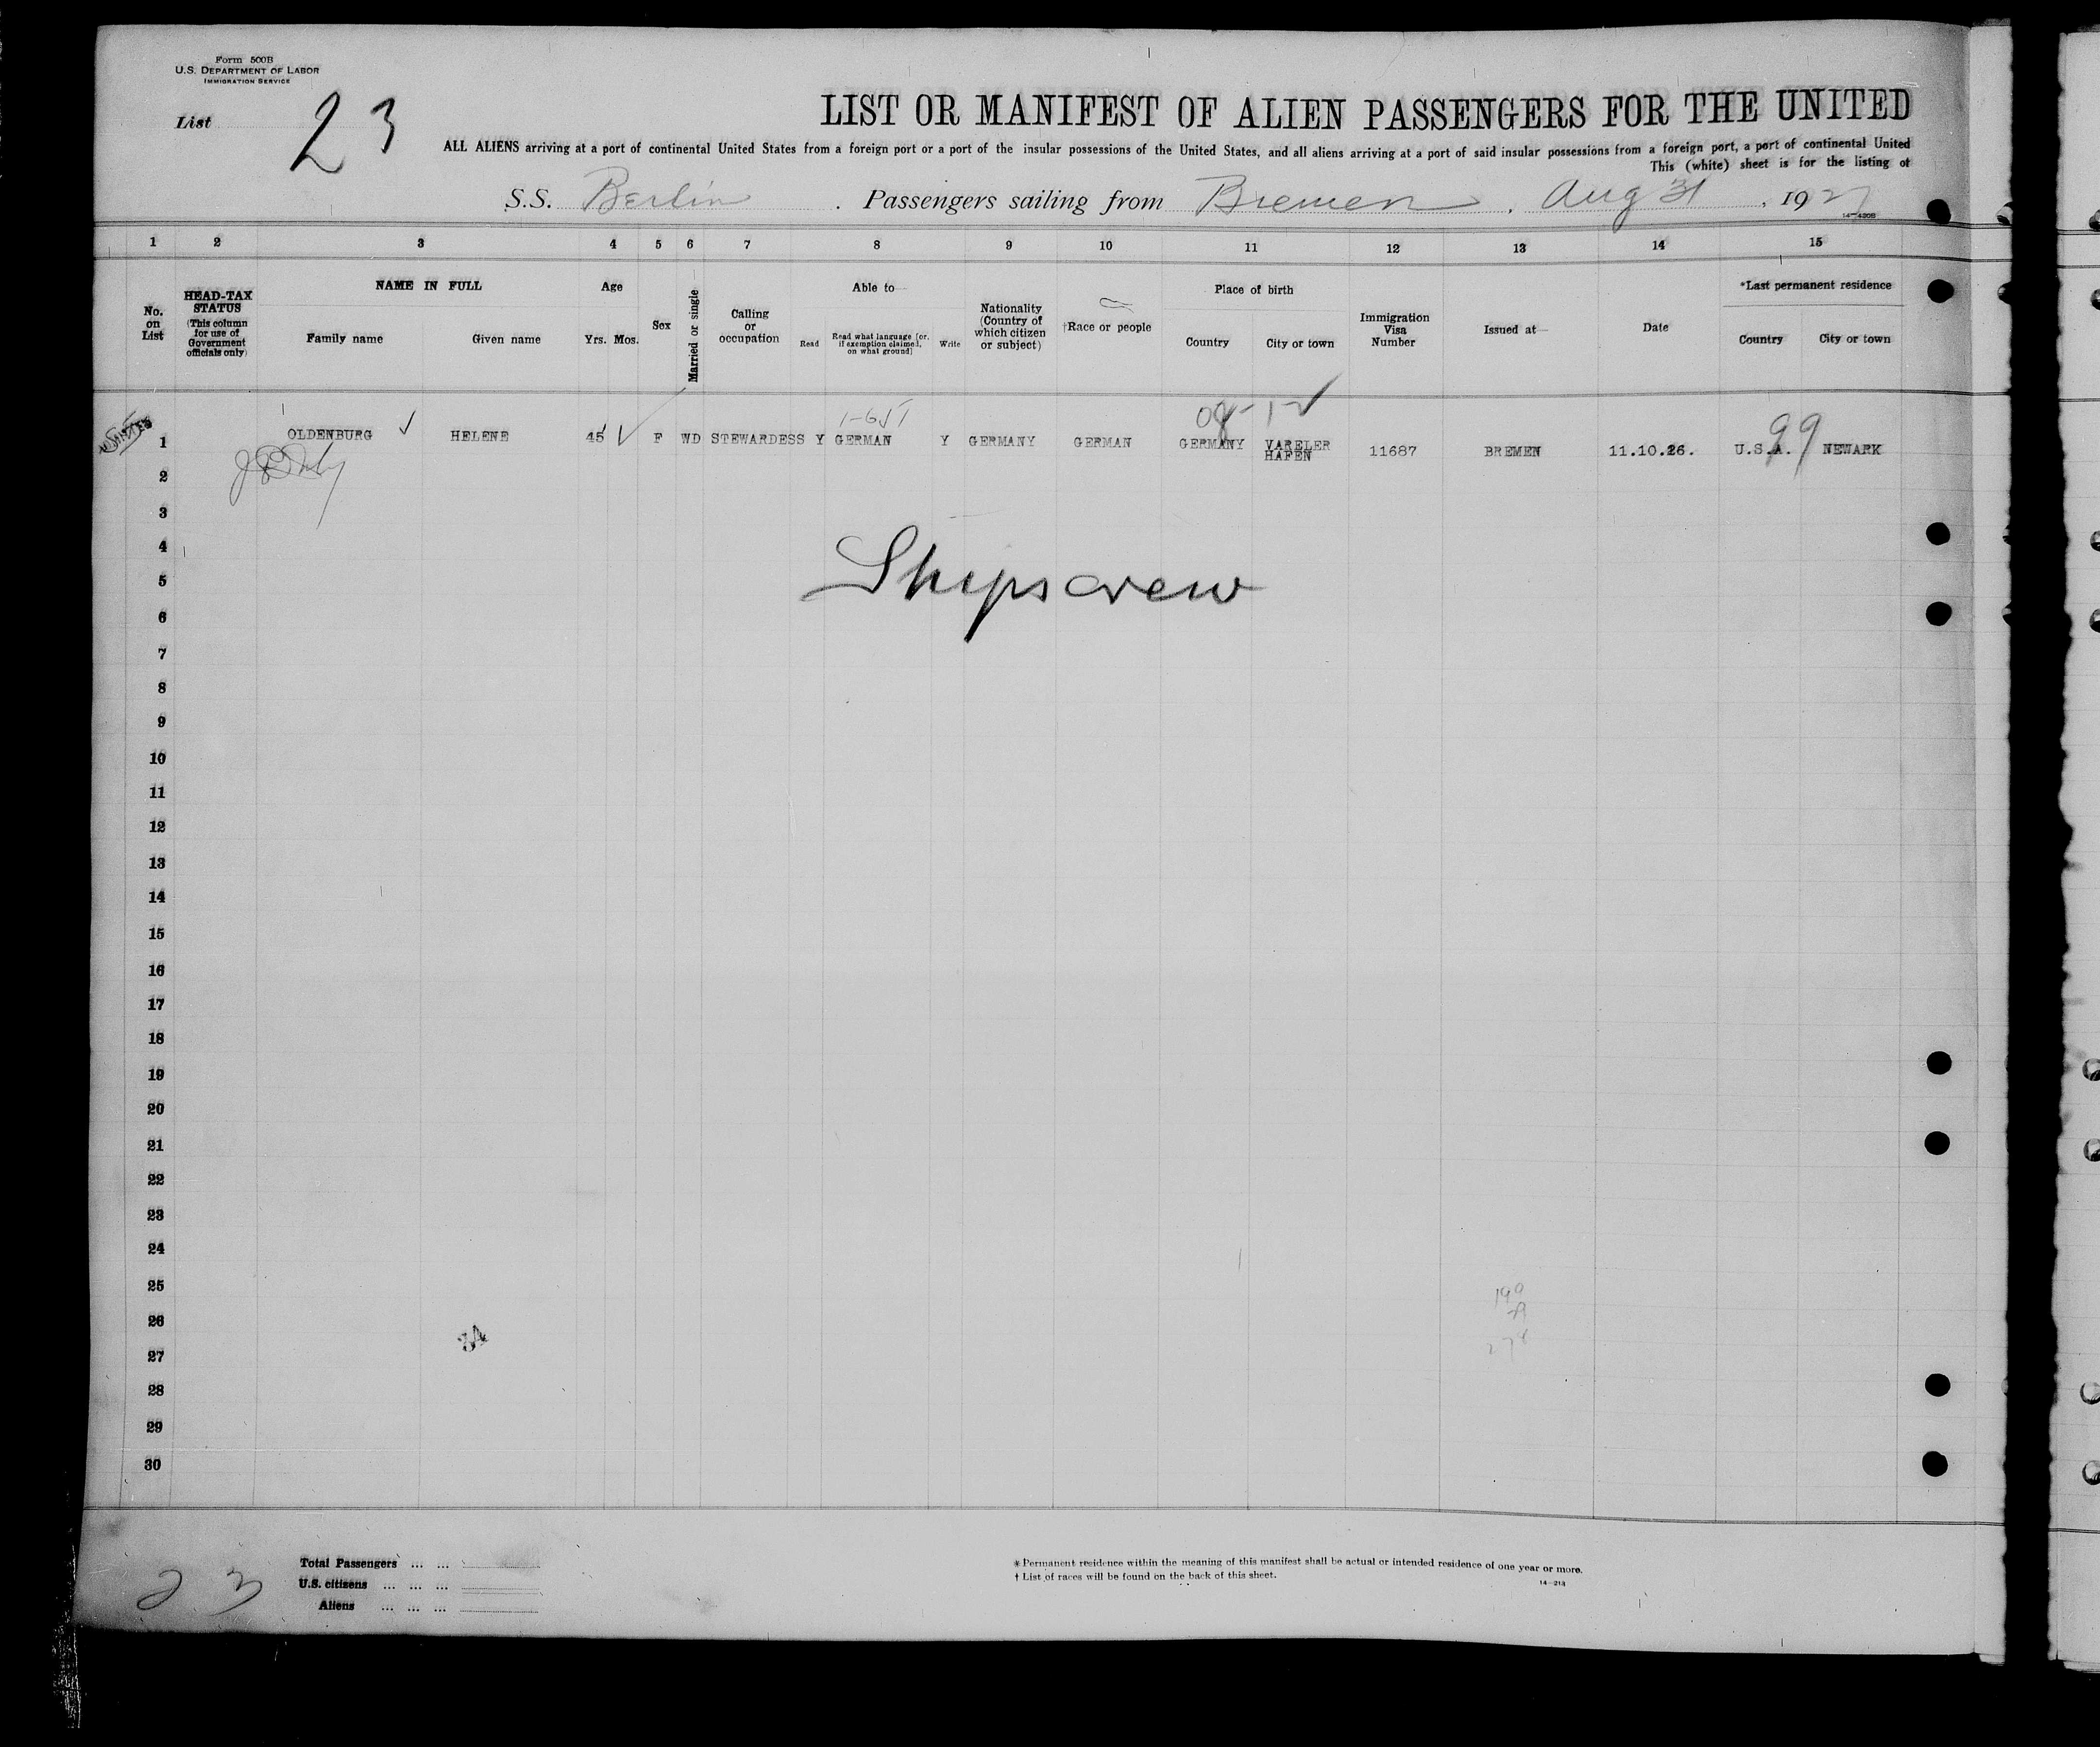 Form 500B
U.S. DEPARTMENT OF LABOR
IMMIGRATION SERVICE
List 23
LIST OR MANIFEST OF ALIEN PASSENGERS FOR THE UNITED
ALL ALIENS arriving at a port of continental United States from a foreign port or a port of the insular possessions of the United States, and all aliens arriving at a port of said insular possessions from a foreign port, a port of continental United
This (white) sheet is for the listing of
S.S. Berlin . Passengers sailing from Bremen , Aug 31 , 1927
14-420B
1 2 3 4 5 6 7 8 9 10 11 12 13 14 15
No. on List
HEAD-TAX STATUS
(This column for use of Government officials only)
NAME IN FULL
Family name Given name
Age
Yrs. Mos.
Sex
Married or single
Calling or occupation
Able to—
Read
Read what language [or, if exemption claimed, on what ground]
Write
Nationality (Country of which citizen or subject)
†Race or people
Place of birth
Country City or town
Immigration Visa Number
Issued at—
Date
*Last permanent residence
Country City or town
08-1-
99
1 OLDENBURG HELENE 45 F WD STEWARDESS Y GERMAN Y GERMANY GERMAN GERMANY VARELER HAFEN 11687 BREMEN 11.10.26. U.S.A. NEWARK
2
3
4
Shipscrew
5
6
7
8
9
10
11
12
13
14
15
16
17
18
19
20
21
22
23
24
25
26
27
34
28
29
30
Total Passengers ... ...
U.S. citizens ... ... ...
Aliens ... ... ...
23
* Permanent residence within the meaning of this manifest shall be actual or intended residence of one year or more.
† List of races will be found on the back of this sheet.
14-213